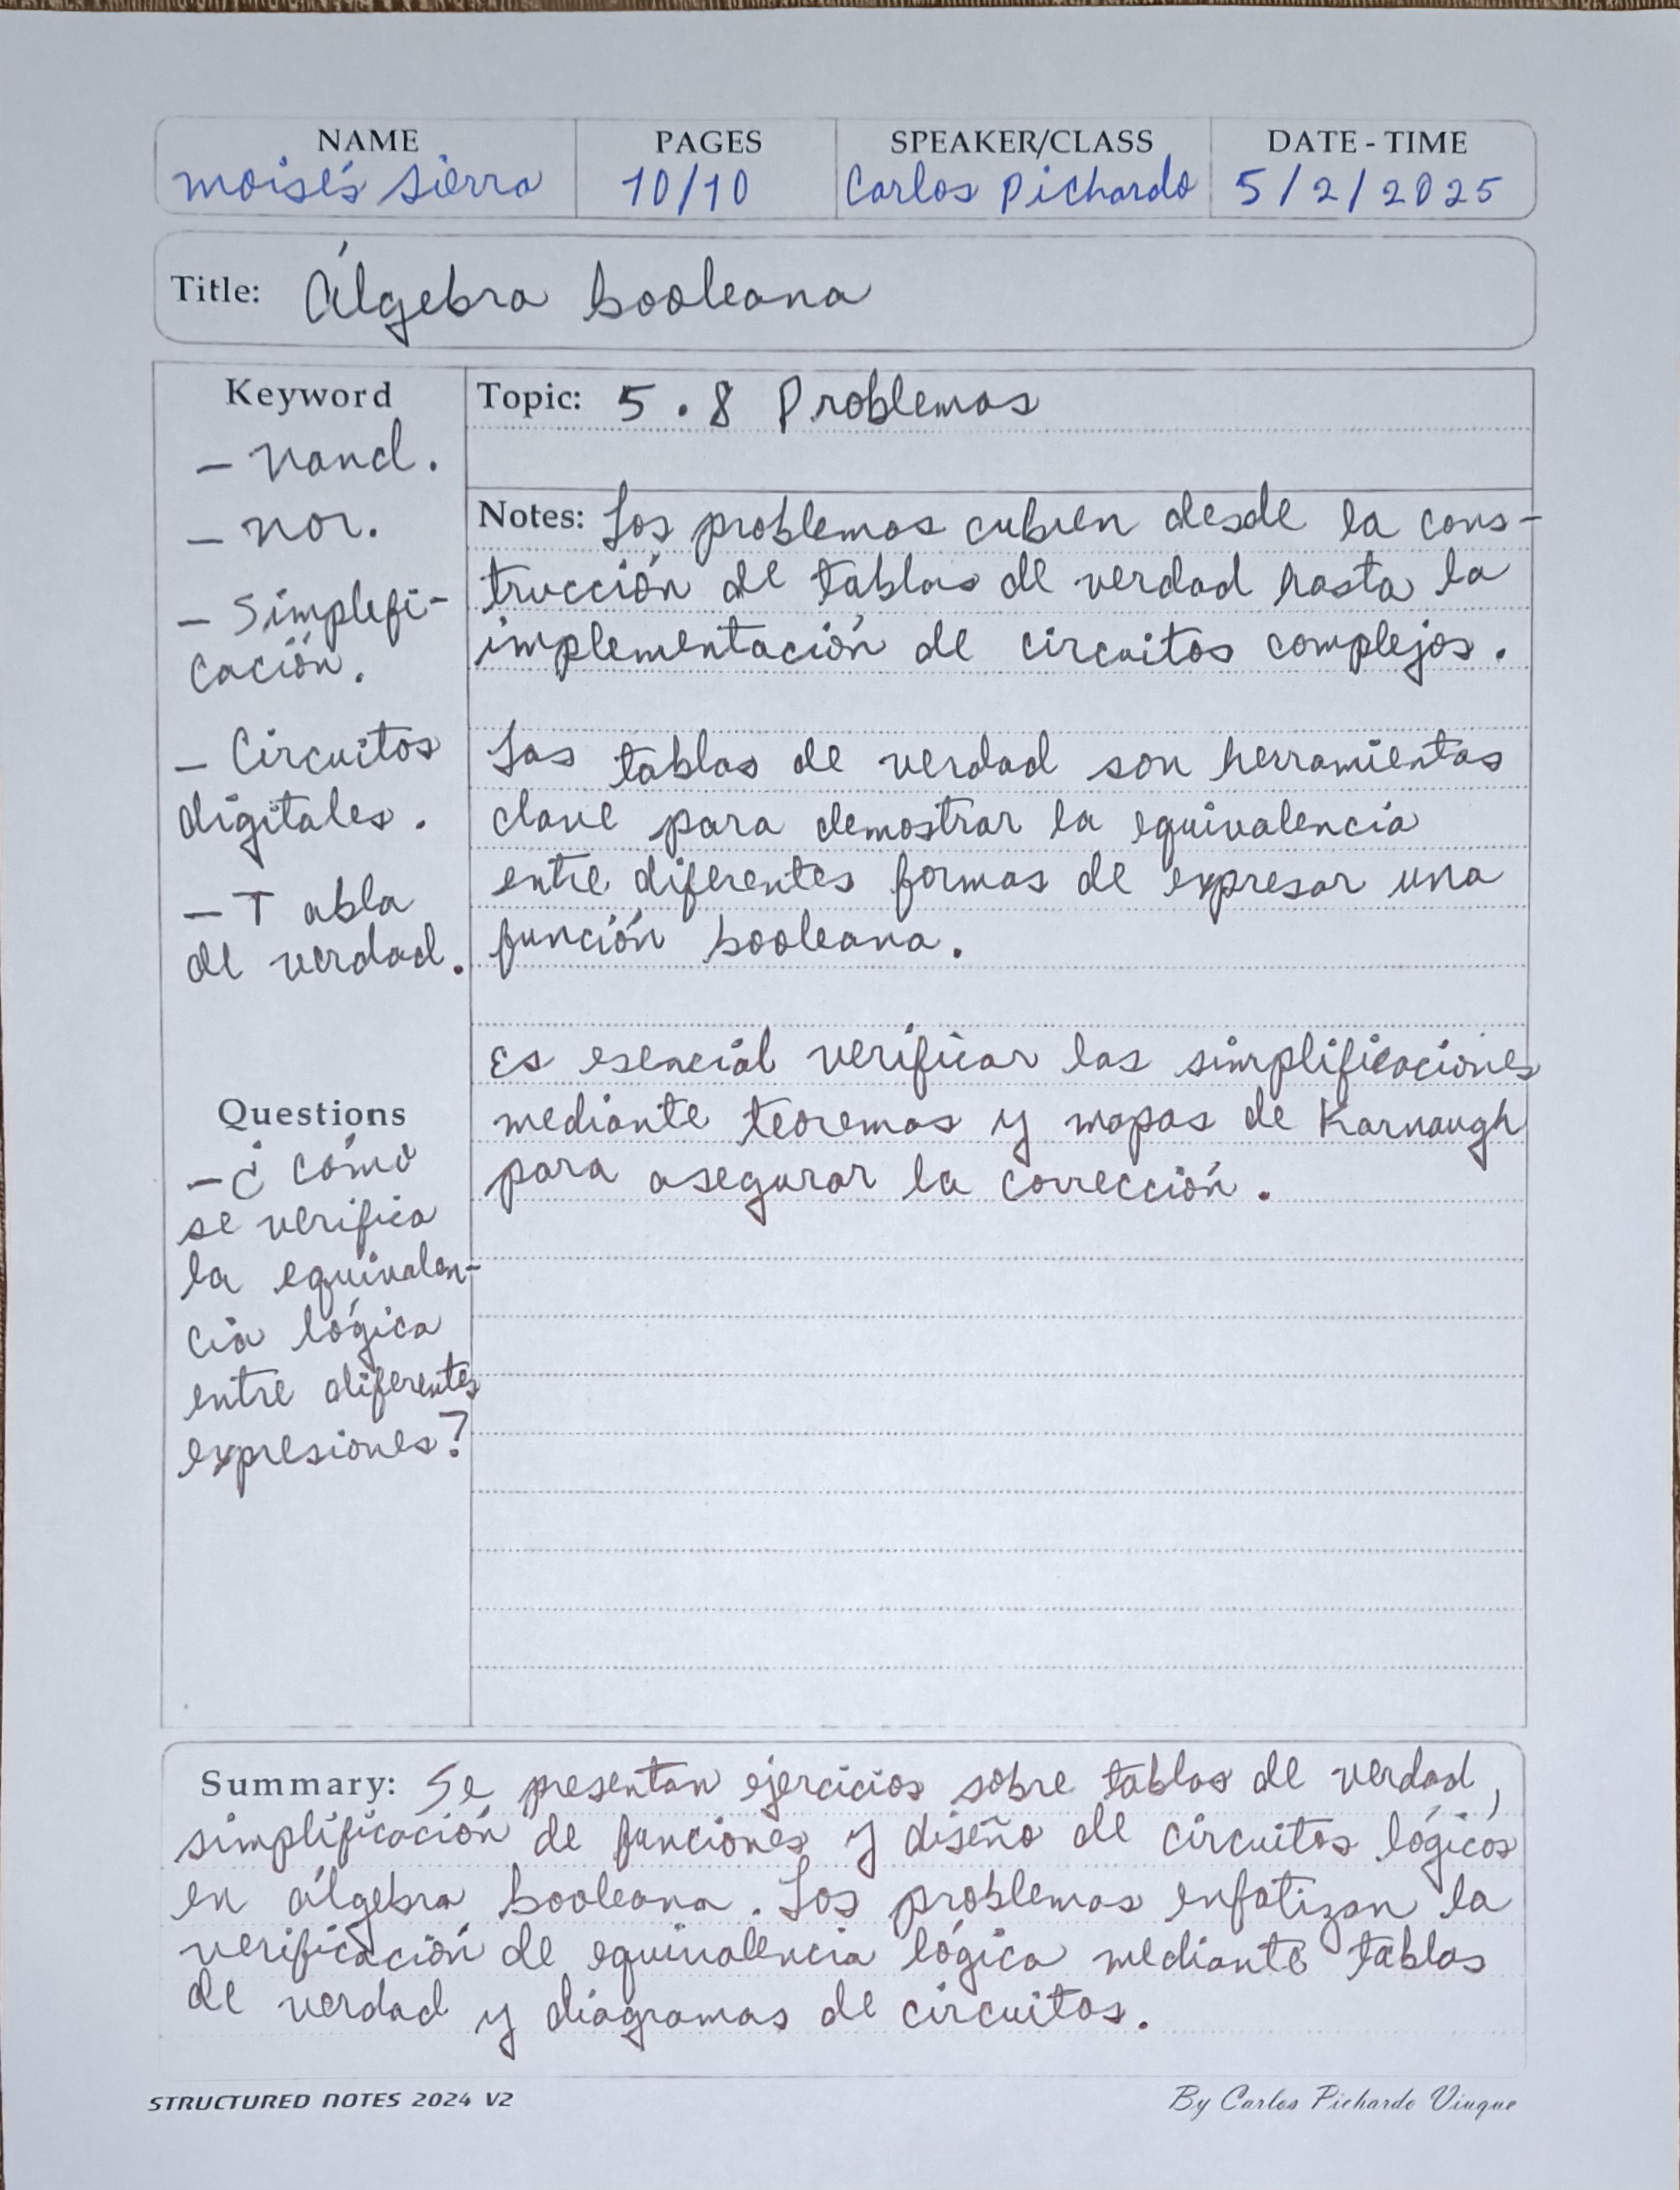 NAME PAGES SPEAKER/CLASS DATE - TIME
Moisés Sierra 10/10 Carlos Pichardo 5/2/2025
Title: Álgebra booleana
Keyword
- Nand.
- Nor.
- Simplifi-
cación.
- Circuitos
digitales.
- Tabla
de verdad.
Questions
- ¿Cómo
se verifica
la equivalen-
cia lógica
entre diferentes
expresiones?
Topic: 5.8 Problemas
Notes: Los problemas cubren desde la cons-
trucción de tablas de verdad hasta la
implementación de circuitos complejos.
Las tablas de verdad son herramientas
clave para demostrar la equivalencia
entre diferentes formas de expresar una
función booleana.
Es esencial verificar las simplificaciones
mediante teoremas y mapas de Karnaugh
para asegurar la corrección.
Summary: Se presentan ejercicios sobre tablas de verdad,
simplificación de funciones y diseño de circuitos lógicos
en álgebra booleana. Los problemas enfatizan la
verificación de equivalencia lógica mediante tablas
de verdad y diagramas de circuitos.
STRUCTURED NOTES 2024 V2 By Carlos Pichardo Viuque